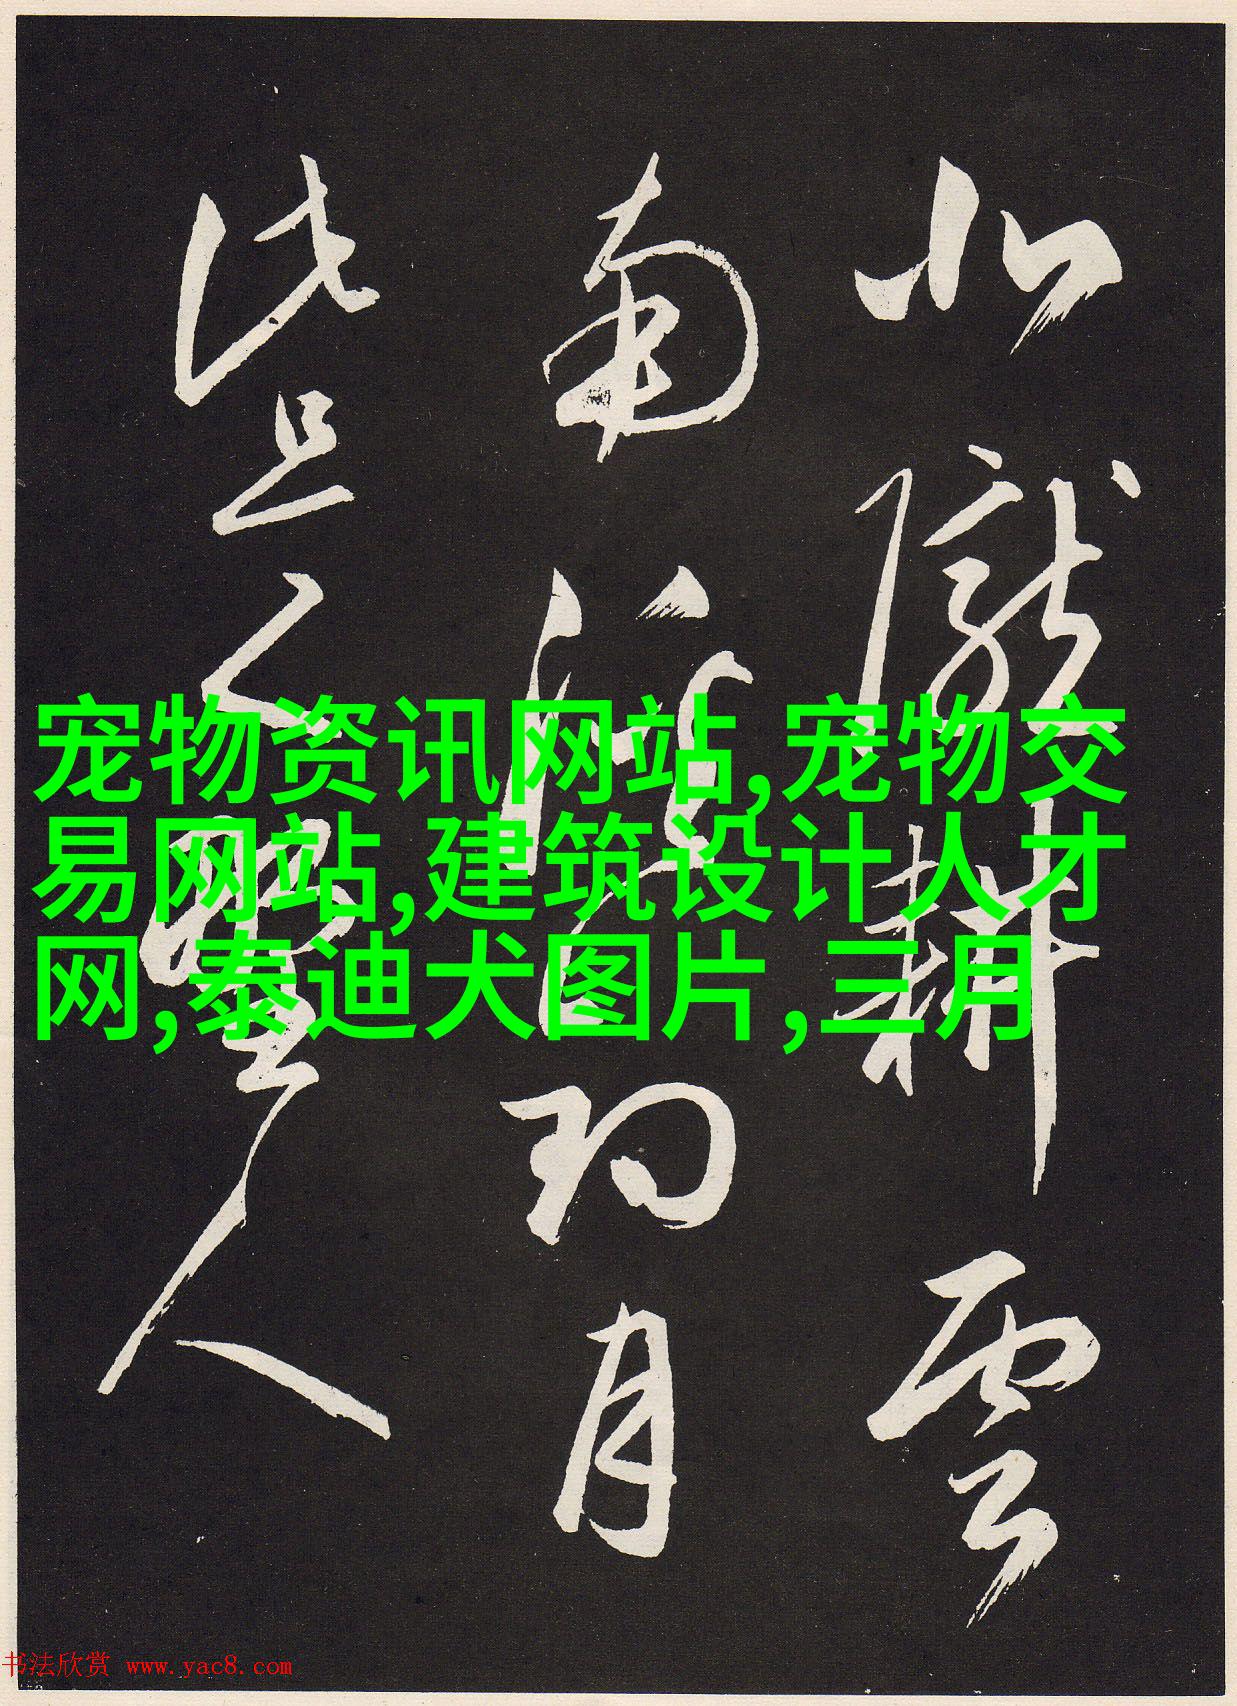 北隴耕雲
南溪釣月
此是野人
宠物资讯网站,宠物交
易网站,建筑设计人才
网,泰迪犬图片,三月
书法欣赏 www.yac8.com